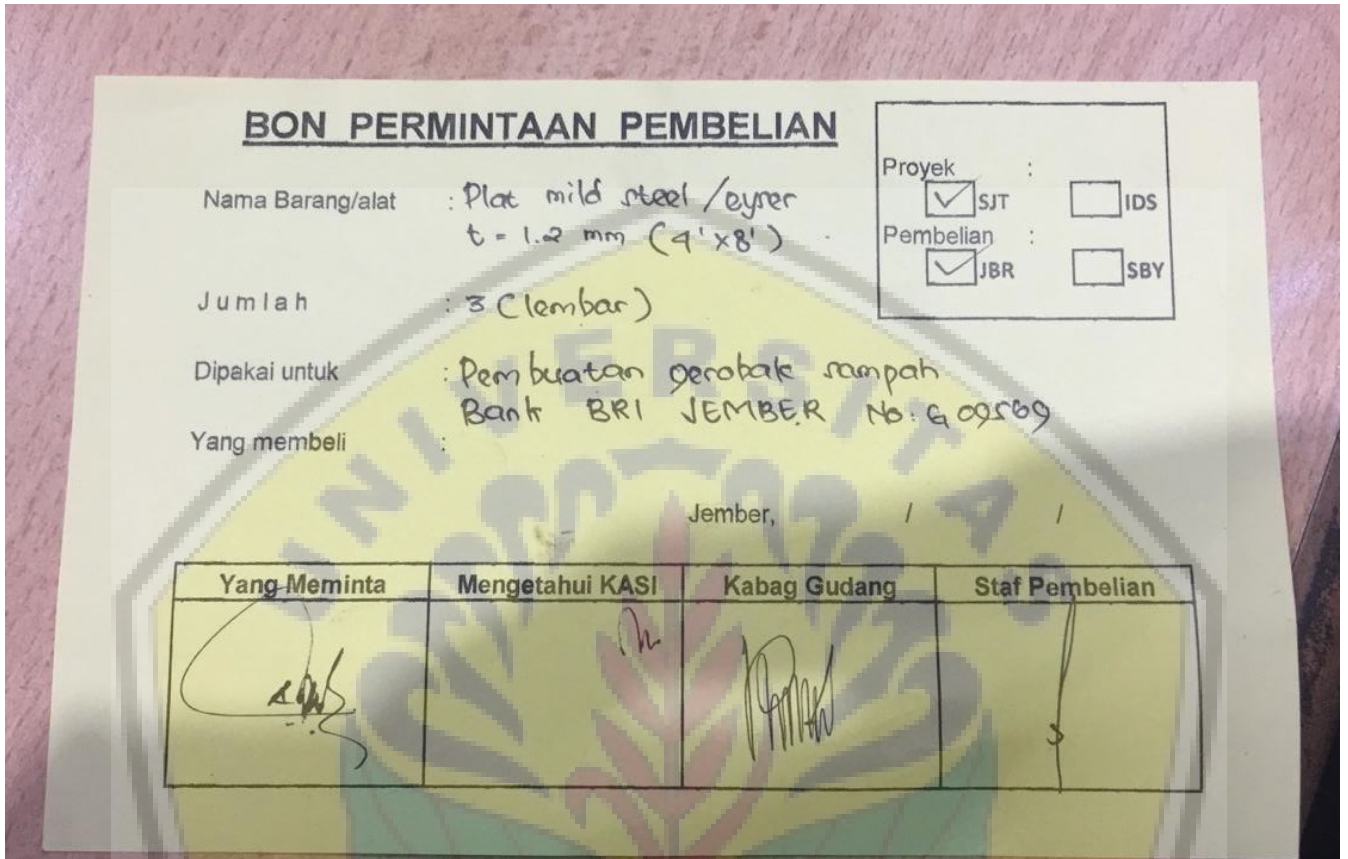 BON PERMINTAAN PEMBELIAN
Proyek :
SJT IDS
Pembelian :
JBR SBY
Nama Barang/alat : Plat mild steel / eyser
t = 1.2 mm (4'x8')
Jumlah : 3 (lembar)
Dipakai untuk : Pembuatan gerobak sampah
Bank BRI JEMBER No: G 09569
Yang membeli :
Jember, / /
Yang Meminta Mengetahui KASI Kabag Gudang Staf Pembelian
UNIVERSITAS